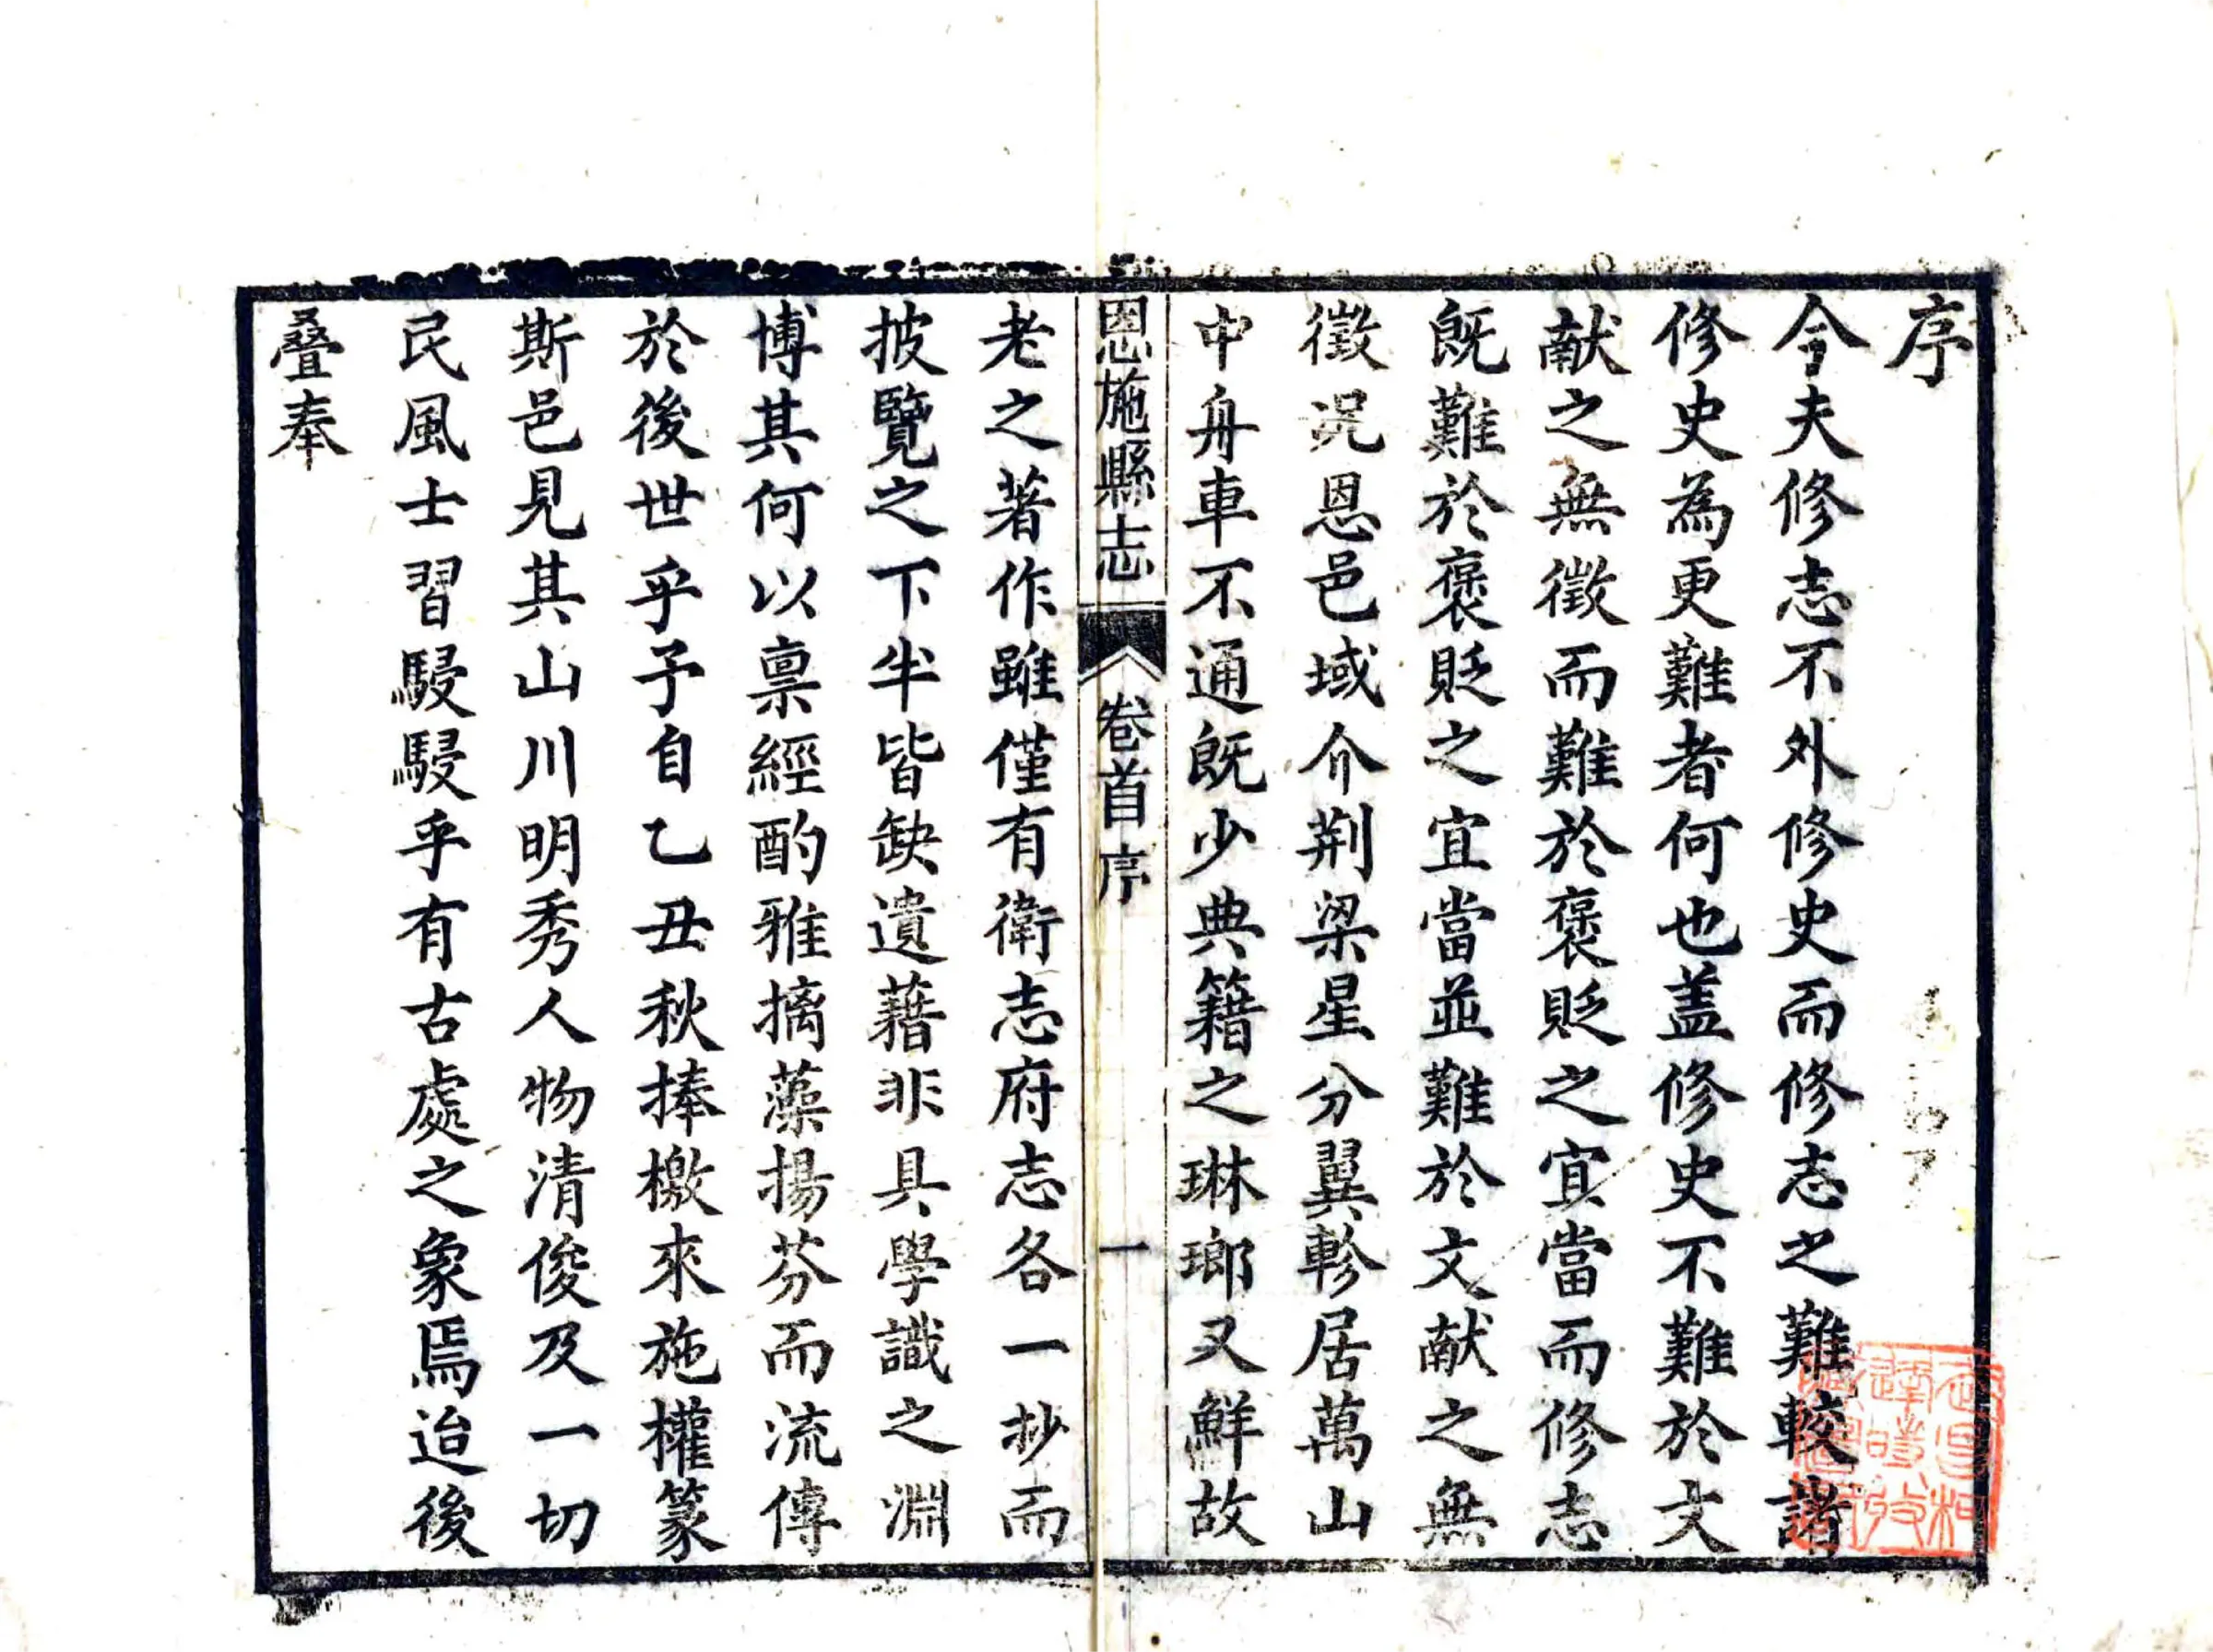 序
今夫修志不外修史而修志之難較諸
修史為更難者何也盖修史不難於文
献之無徵而難於褒貶之宜當而修志
既難於褒貶之宜當並難於文献之無
徵况恩邑域介荆梁星分翼軫居萬山
中舟車不通既少典籍之琳瑯又鮮故
恩施縣志
卷首序
一
老之著作雖僅有衛志府志各一抄而
披覽之下半皆缺遺藉非具學識之淵
博其何以禀經酌雅摛藻揚芬而流傳
於後世乎予自乙丑秋捧檄來施權篆
斯邑見其山川明秀人物清俊及一切
民風士習駸駸乎有古處之象焉迨後
叠奉